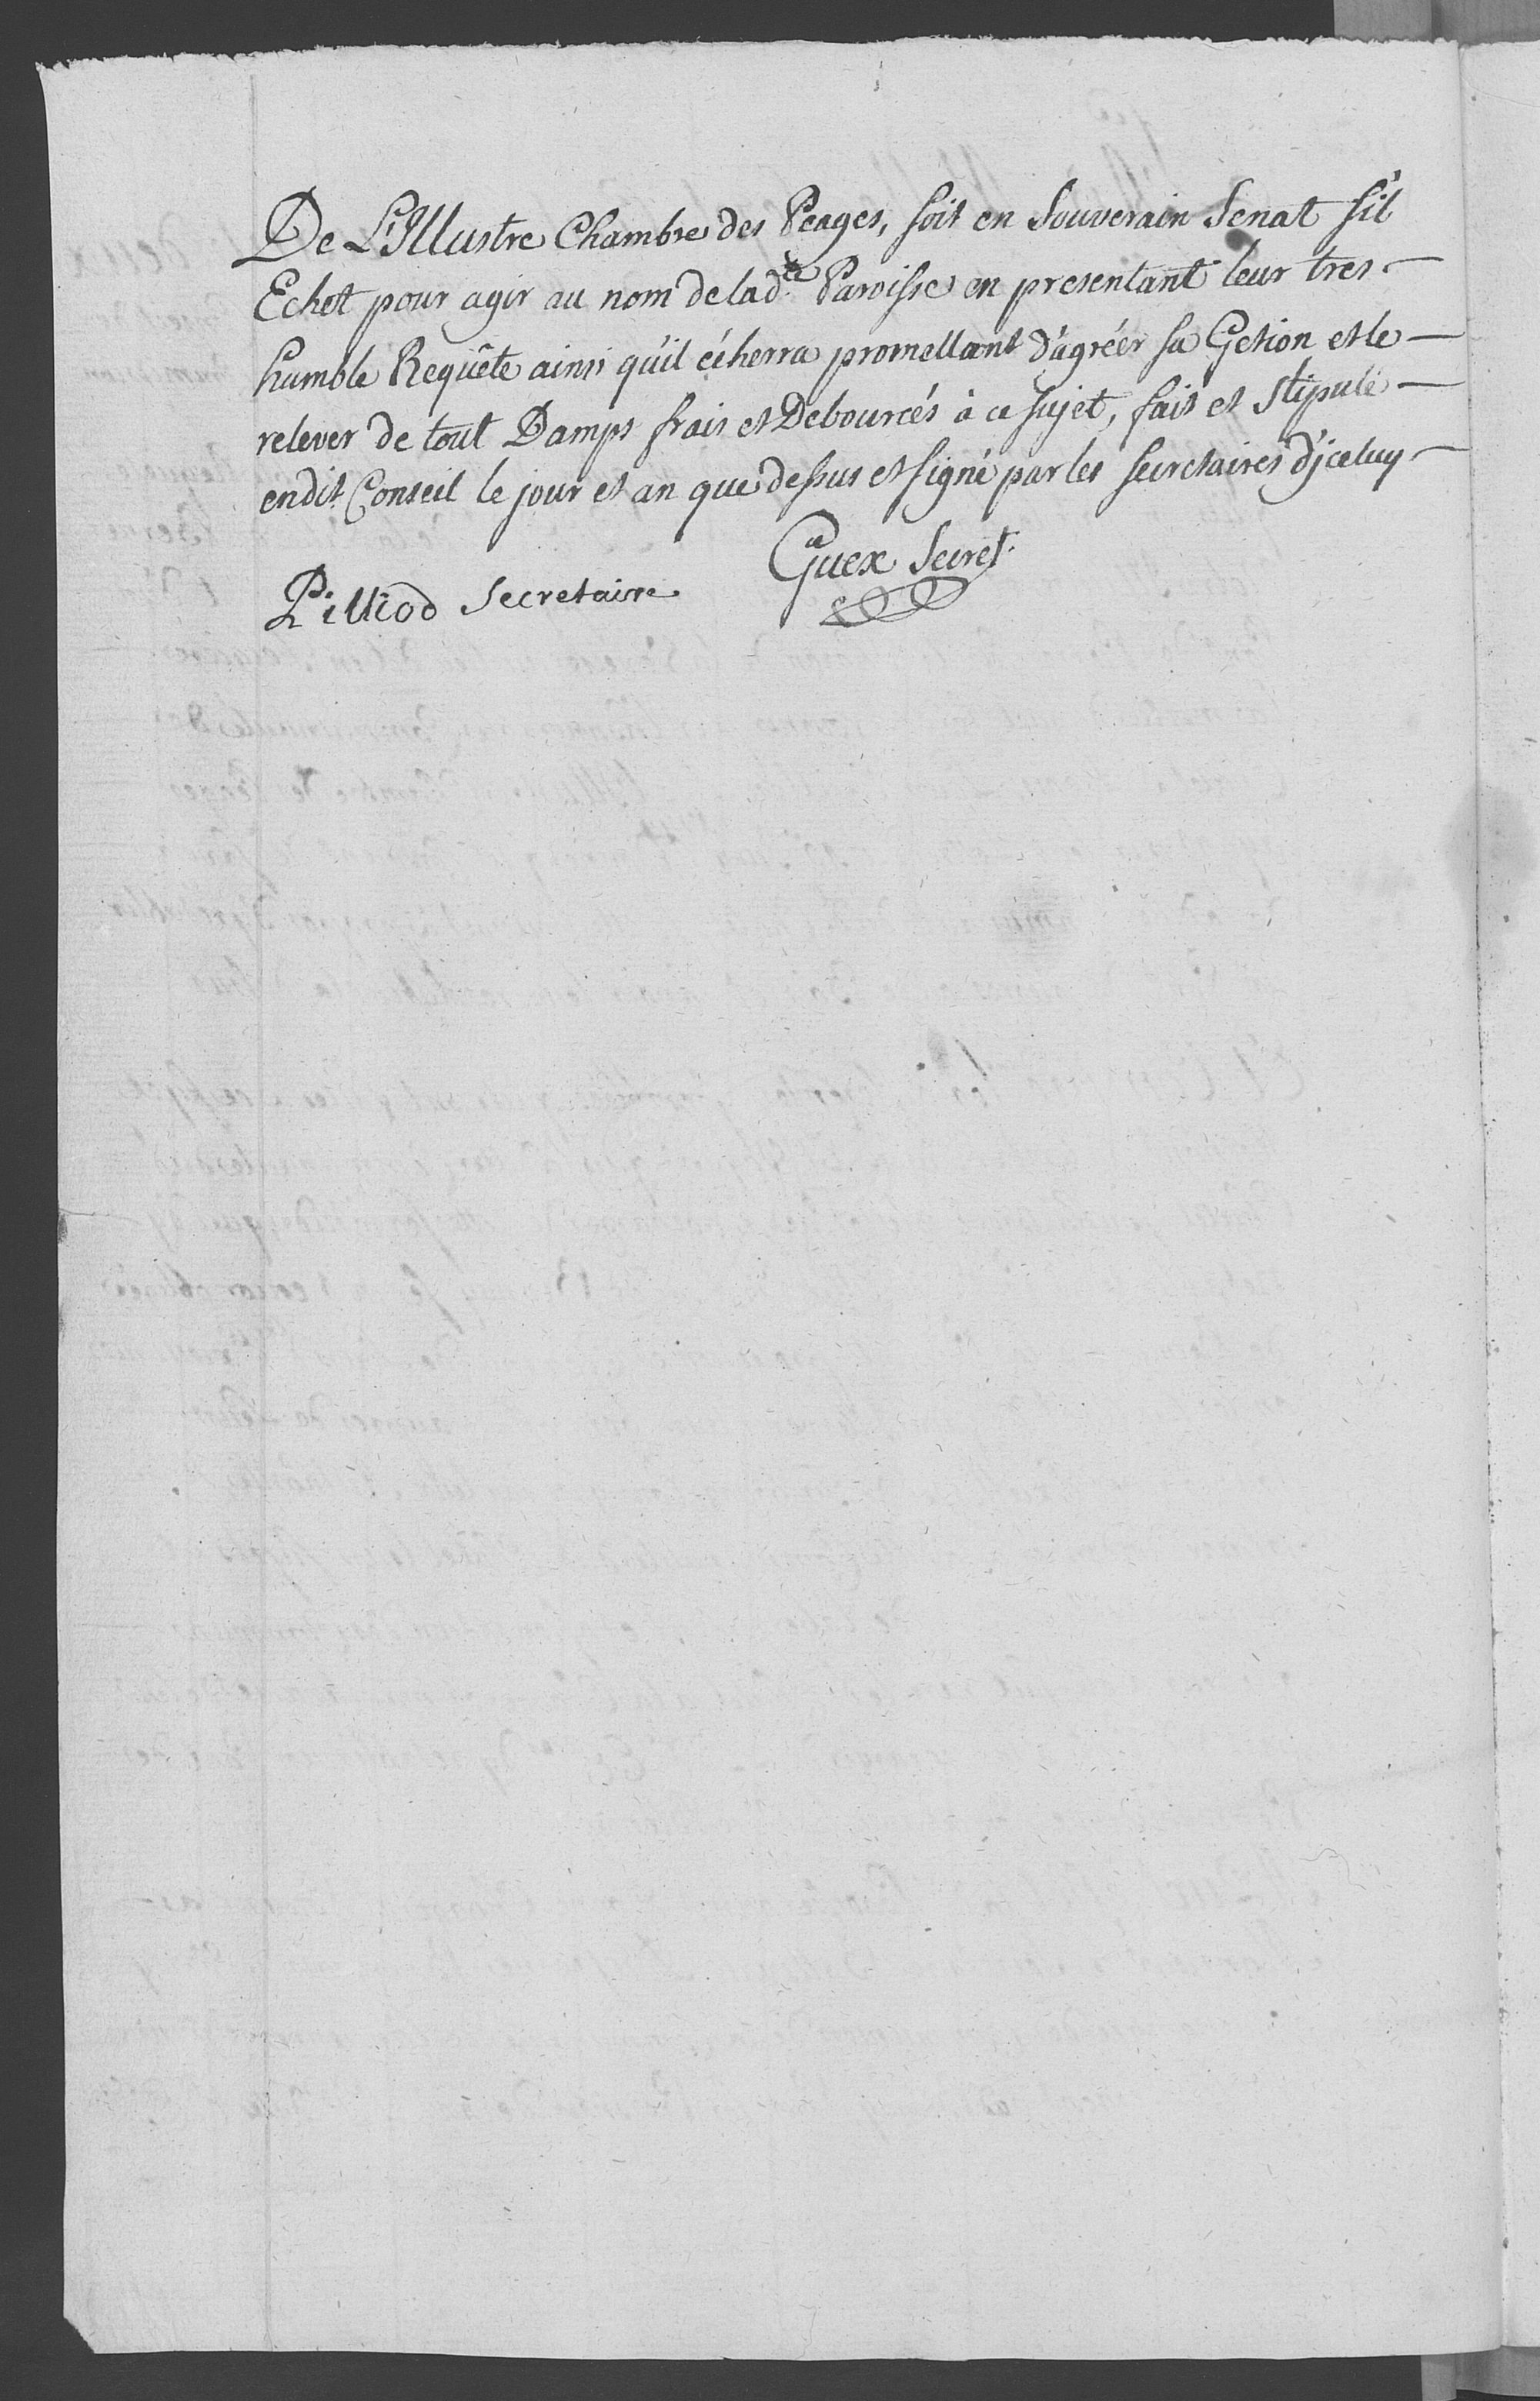 De L'Illustre Chambre des Péages, soit en Souverain Senat s'il
Echet pour agir au nom de lad.te Paroisse en presentant leur tres-
humble Requête ainsi qu'il écherra promettant d'agréér sa Gestion et le
relever de tout Damps frais et Debourcés à ce sujet, fait et stipulé
endit Conseil le jour et an que dessus et signé par les secretaires d'jceluy
Pilliod Secretaire
Guex Secret.